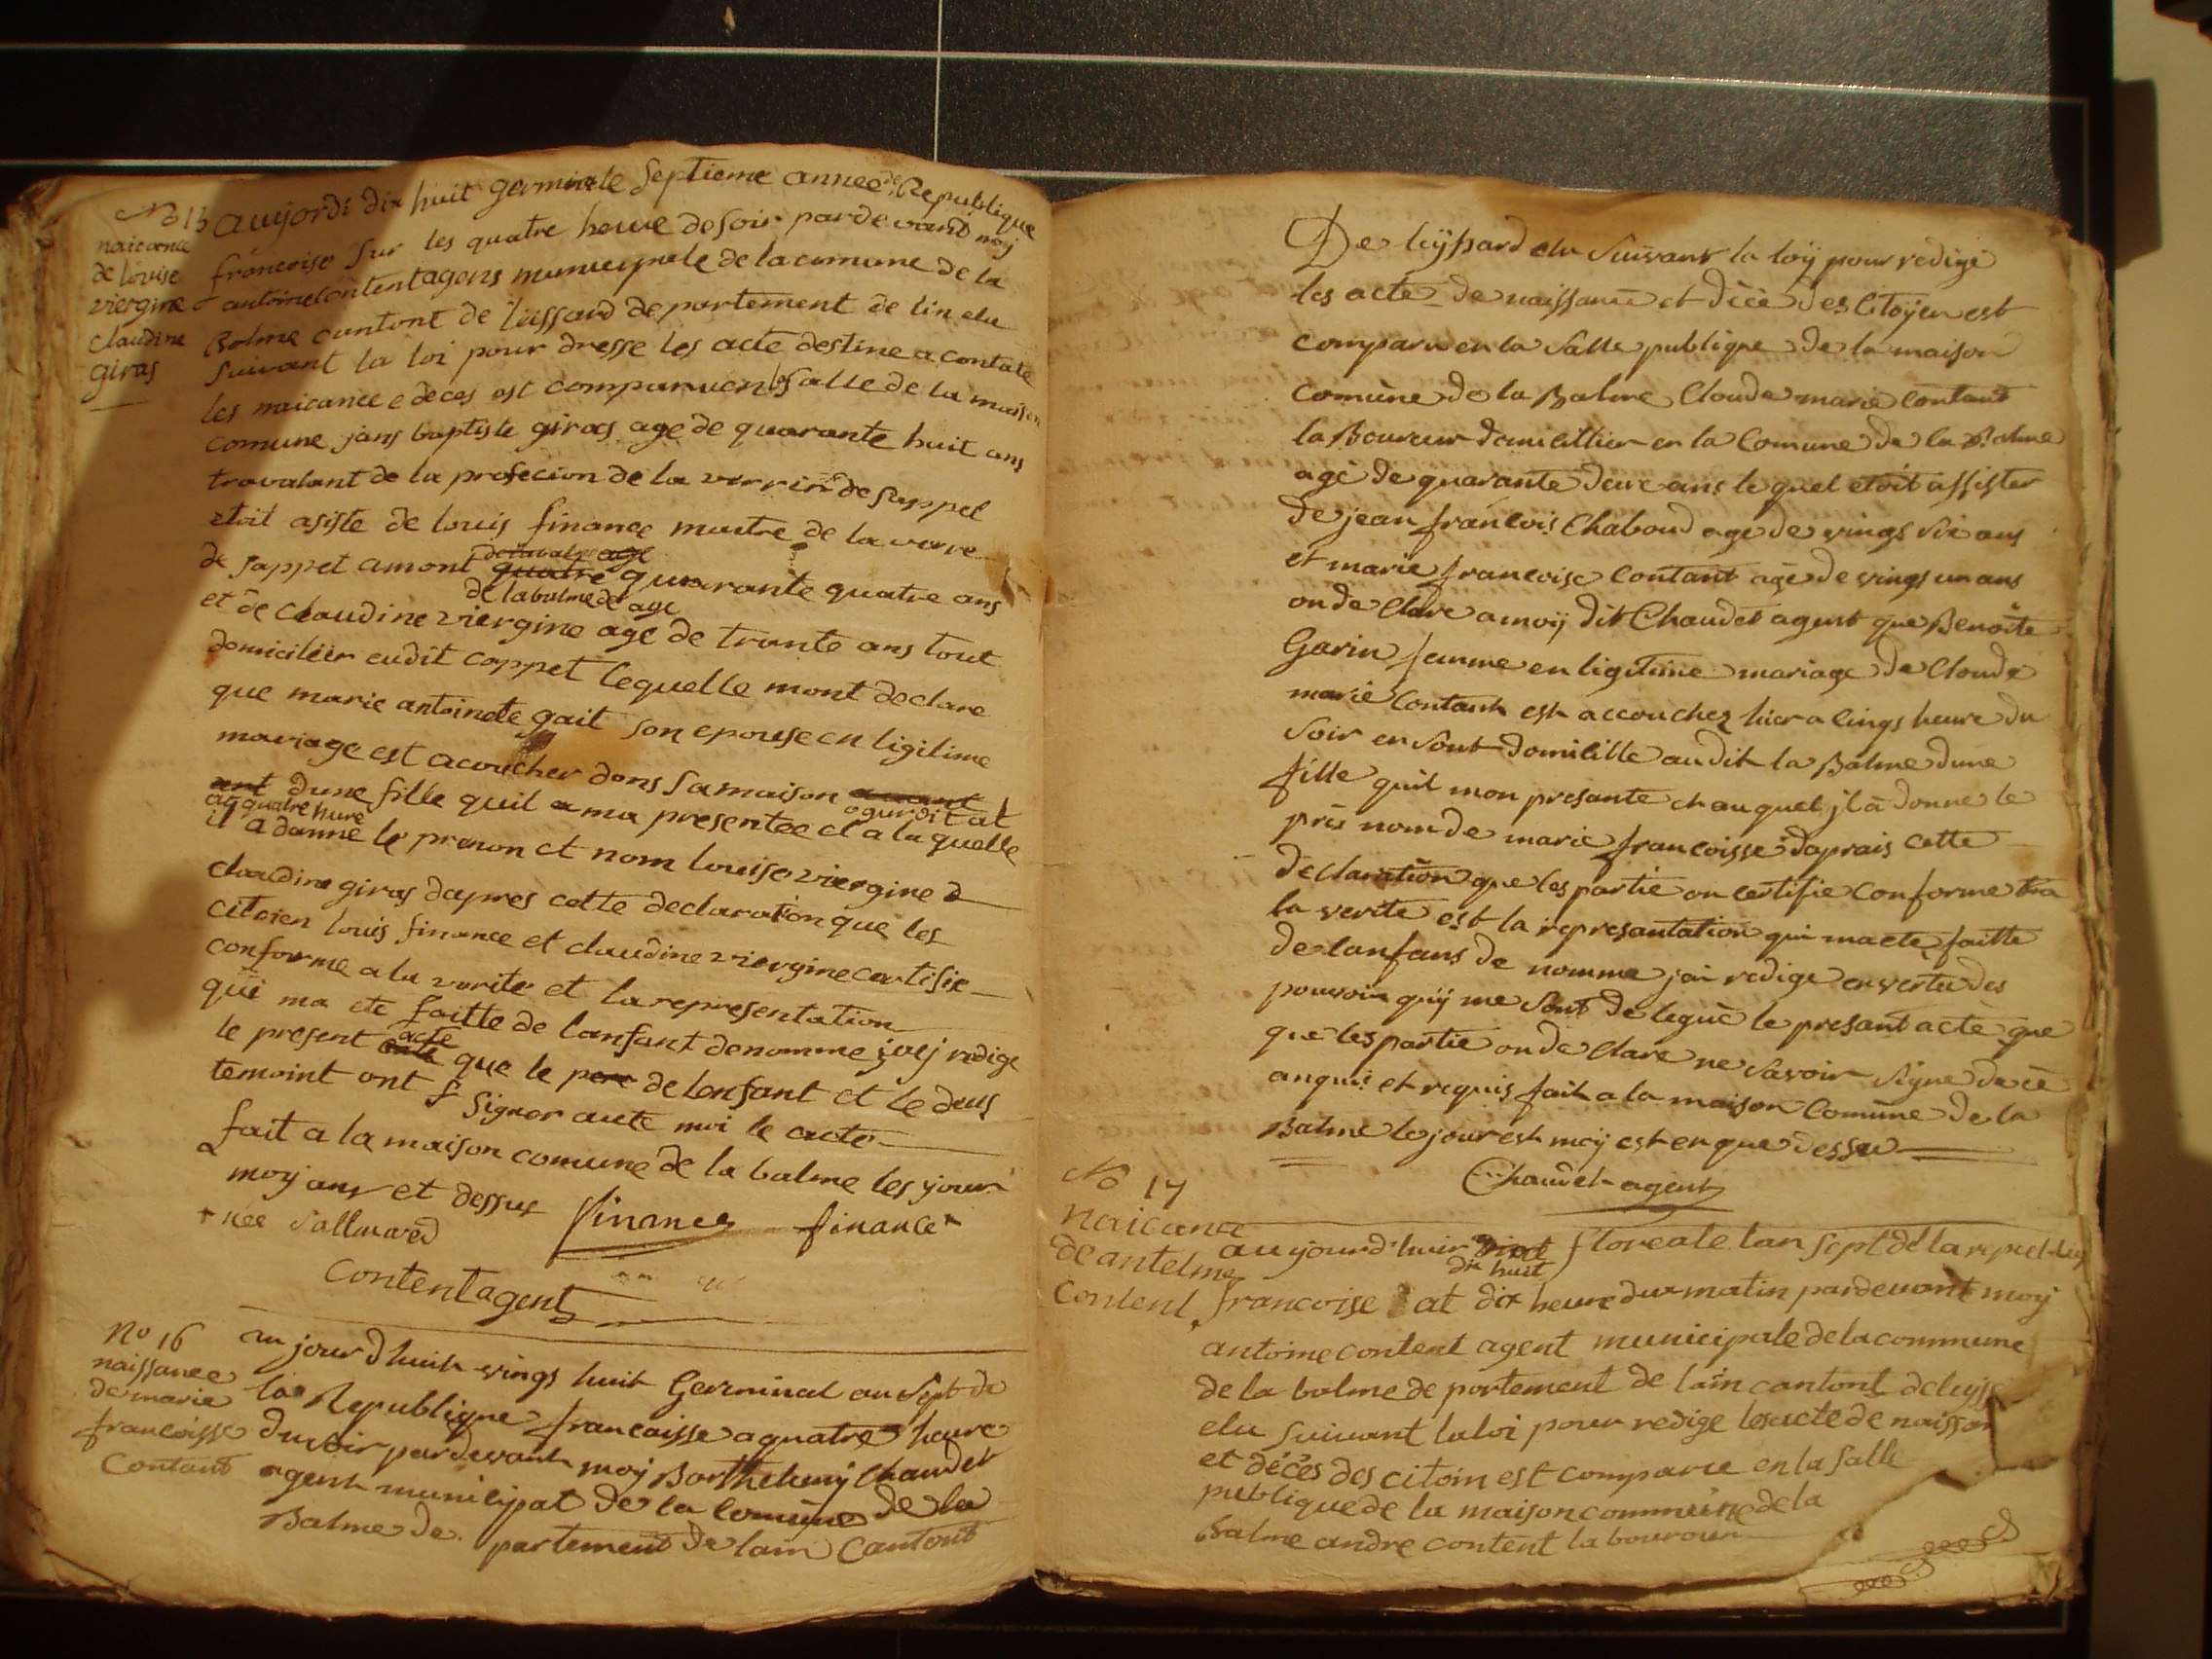 No 15
naicance
de louise
viergine
claudine
giras
aujordi dix huit germinale septieme annee de Republique
francoise sur les quatre heure de soir pardevant moj
antoine content agens municipale de la comune de la
Balme cantont de luissard departement de lin elu
suivant la loi pour dresse les acte destine a contate
les naicance e deces est comparu en la salle de la maison
comune jans baptiste giras age de quarante huit ans
travalant de la profecion de la verrir de sappel
etoit asiste de louis finance maitre de la verre
de sappet amont quatre age quarante quatre ans
de la balme de age
et de claudine viergine age de trante ans tout
domicilier eudit coppet lequelle mont declare
que marie antoinete gait son epouse en ligitime
mariage est acoucher dans sa maison avant
ant dune fille quil a ma presentee et a la quelle
ogurdit at
at quatre hure
il a danne le prenon et nom louise viergine
claudine giras dapres cette declaration que les
citoien louis finance et claudine viergine certifie
conforme a la verite et la representation
qui ma ete faitte de lanfant denomme jvej redige
le present acte que le pere de lenfant et le deus
temoint ont signer avte moi le acte
fait a la maison comune de la balme les jour
moy ans et dessus finance finance
+ née Sallmard
Content agent
No 16
naissance
de marie
francoisse
Contant
au jour dhuit vings huit Germinal an sept de
la Republique francaisse a quatre heure
du soir pardevant moy Barthelemij Chaudet
agent municipat de la comune de la
Balme departement de lain Cantont
De luyssard elu suivant la loy pour redige
les acte de naissance et décé des Citoyen est
comparu en la salle publique de la maison
comune de la Balme Claude marie Contant
laboureur domicillier en la Comune de la Balme
agé de quarante deux ans le quel etoit assister
de jean francois Chaboud age de vings six ans
et marie francoise Contant agé de vings un ans
on declare a moy dit Chaudet agent que Benoite
Garin famme en ligitime mariage de Claude
marie Contant est accouchez hier a cings heure du
soir en sont domicille au dit la Balme dune
fille quil mon presante et auquel jl a donne le
près nom de marie francoisse daprais cette
declaration que les partie on certifie conforme a
la verite est la representation qui ma ete faitte
de lanfans de nomme jai redige en vertu des
pouvoir quij me sont delegué le presant acte que
que les partie on declare ne savoir signe de ce
anquis et requis fait a la maison Comune de la
Balme le jour est moy est en que dessu
Chaudet agent
No 17
naicance
de antelme
Content
aujourd'huir dix huit floreale lan sept de la republiq
francoise at dix heure dux matin pardevant moy
antoine content agent municipale de la commune
de la balme departement de lain cantont de luyss
elu suivant la loi pour redige les acte de naissan
et décès des citoin est comparu en la salle
publique de la maison commune de la
Balme andre content laboureur